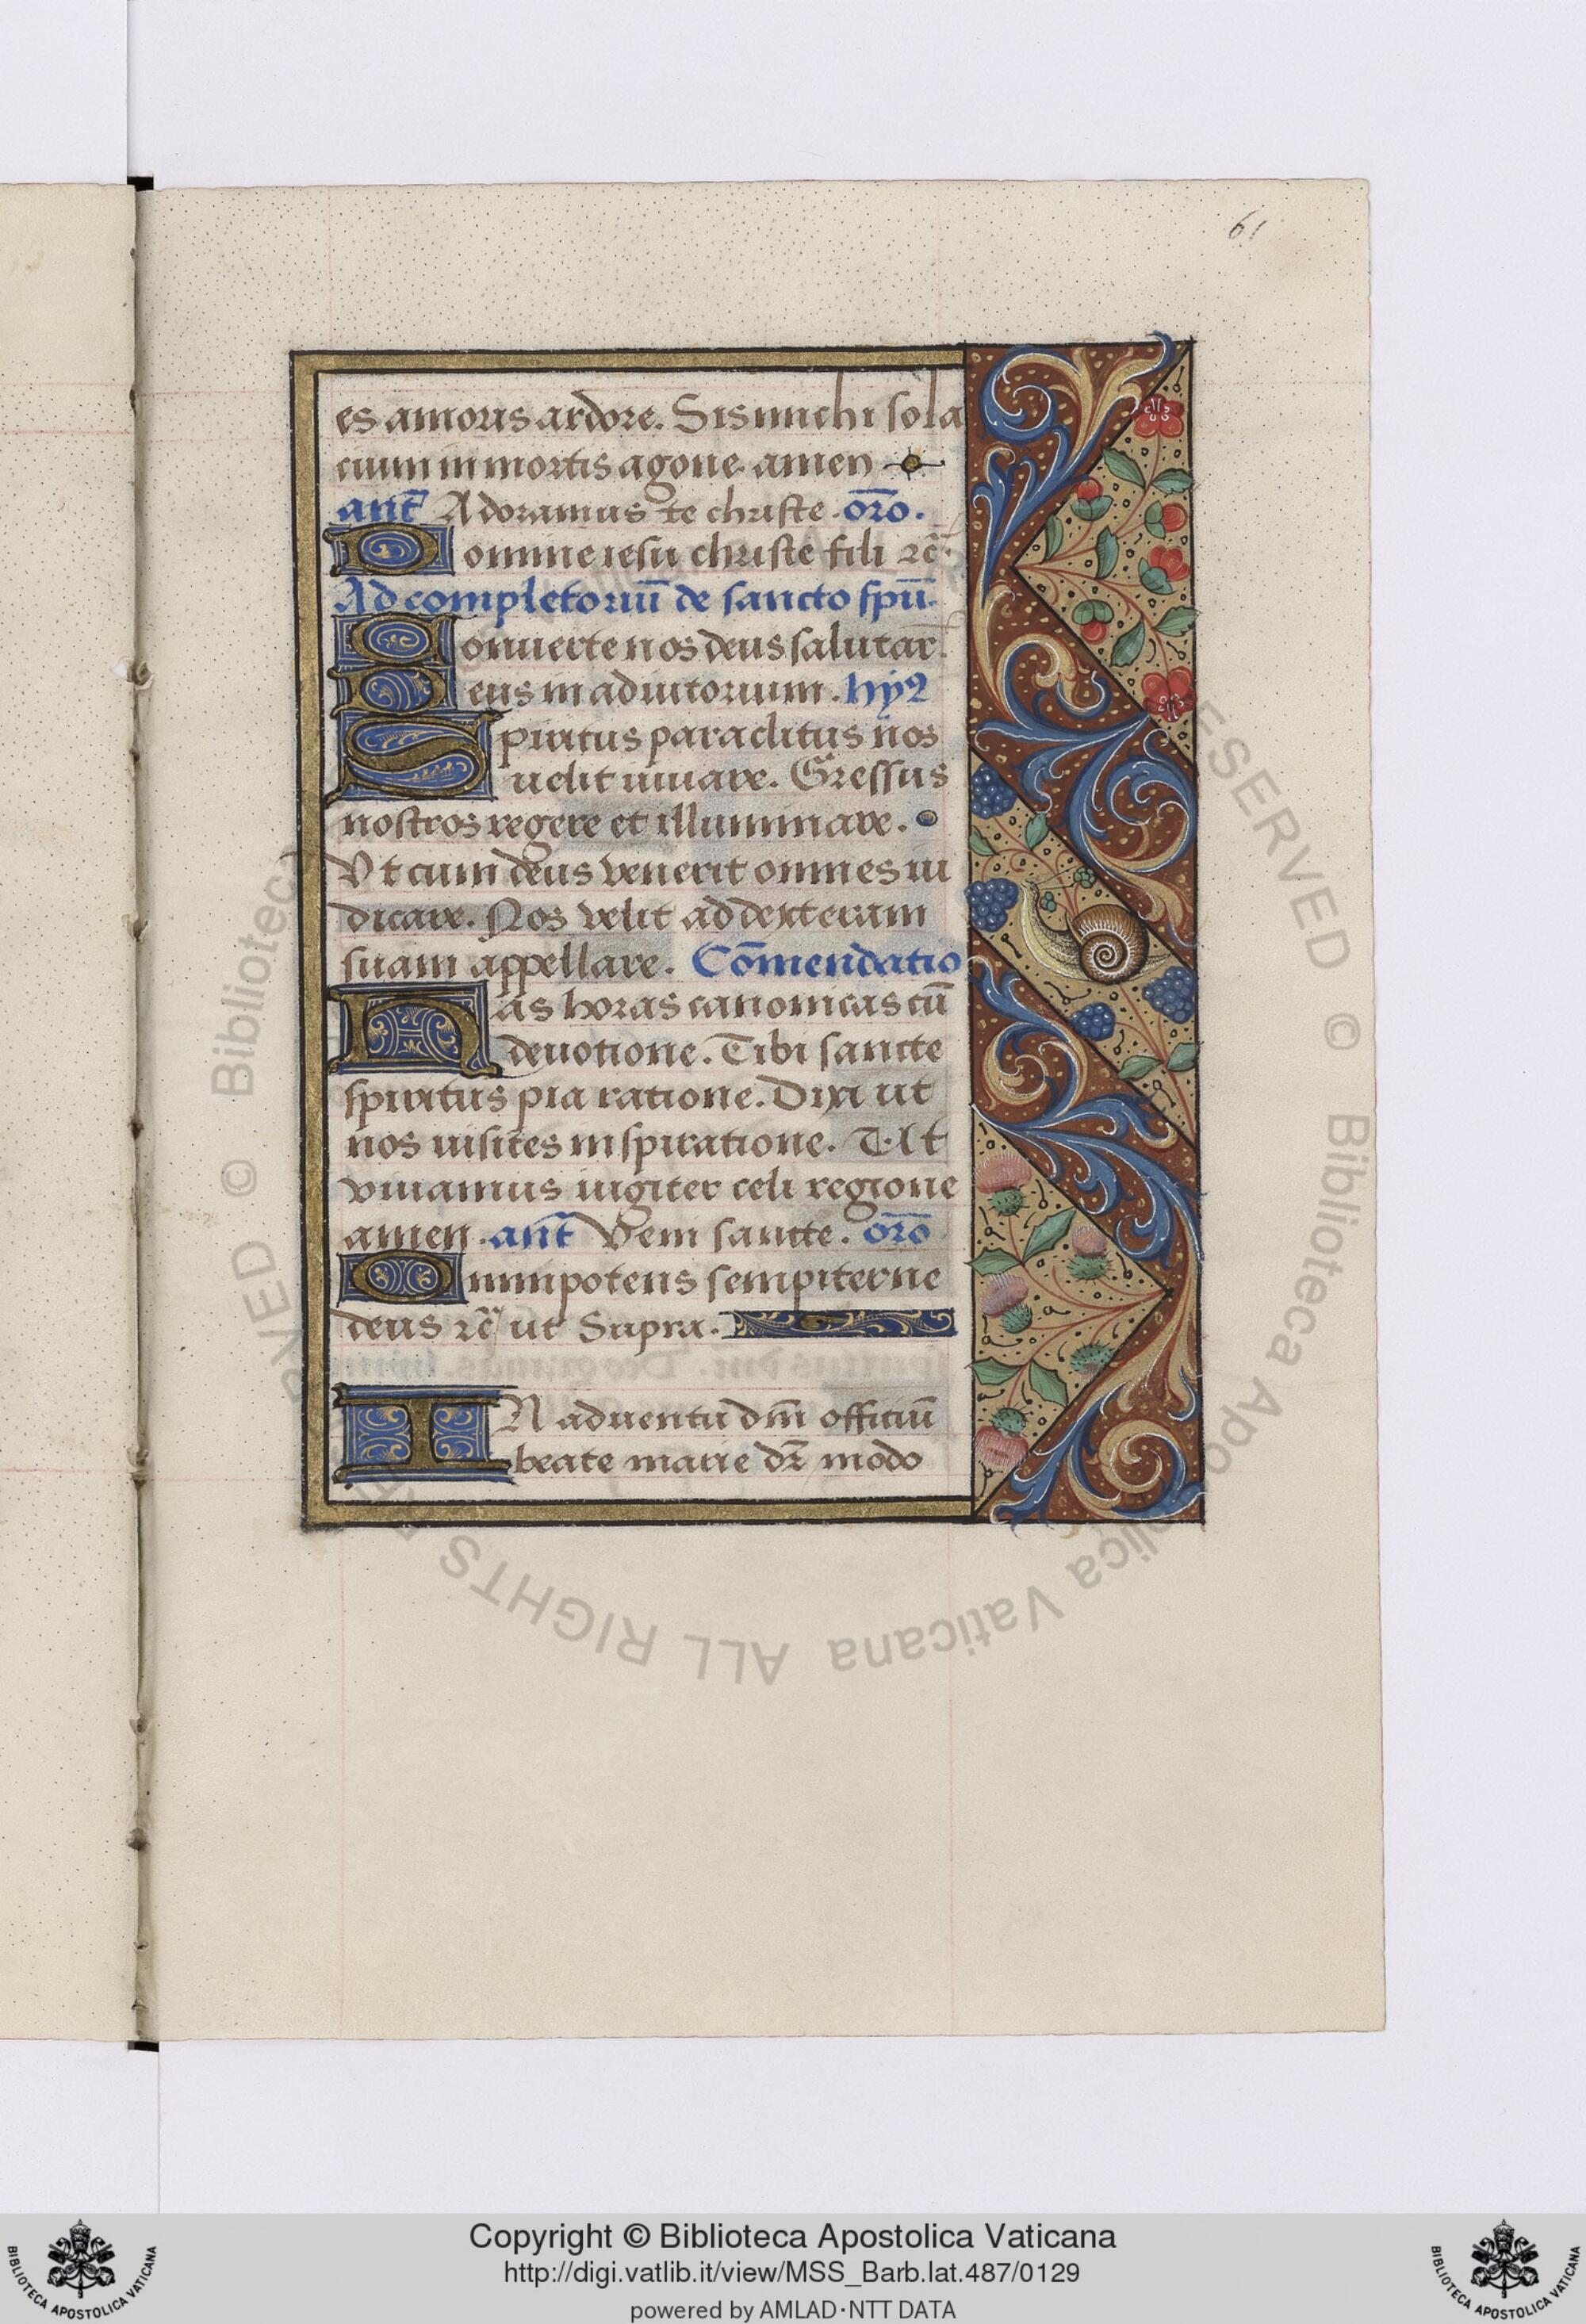 61
es amoris ardore. Sis michi sola
cium in mortis agone. amen
ant̄ Adoramus te christe. or̄o.
Domine iesu christe fili ꝛc̄.
Ad completoriū de sancto spū.
Conuerte nos deus salutar̄.
Deus in adiutorium. hyꝰ
Spiritus paraclitus nos
uelit iuuare. Gressus
nostros regere et illuminare.
Vt cum deus venerit omnes iu
dicare. Nos velit ad dexteram
suam appellare. Cōmendatio
Has horas canonicas cū
deuotione. Tibi sancte
spiritus pia ratione. Dixi ut
nos uisites inspiratione. Ut
viuamus iugiter celi regione
amen. ant̄ Veni sancte. or̄o
Omnipotens sempiterne
deus ꝛc̄ ut Supra.
IN aduentu dn̄i officiū
beate marie dr̄ modo
Biblioteca Apostolica Vaticana ALL RIGHTS RESERVED ©
Copyright © Biblioteca Apostolica Vaticana
http://digi.vatlib.it/view/MSS_Barb.lat.487/0129
powered by AMLAD·NTT DATA
BIBLIOTECA APOSTOLICA VATICANA
BIBLIOTECA APOSTOLICA VATICANA